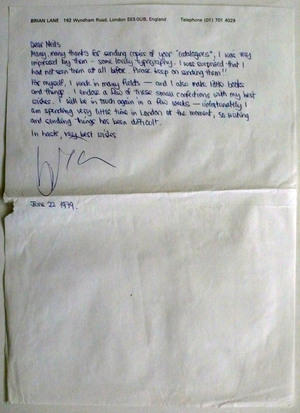 BRIAN LANE 162 Wyndham Road, London SE5 0UB, England Telephone (01) 701 4029
Dear Niels
Many, many thanks for sending copies of your "catalogues", I was very
impressed by them - some lovely typography. I was surprised that I
had not seen them at all before. Please keep on sending them!!
For myself, I work in many fields — and I also make little books
and things. I enclose a few of these small confections with my best
wishes. I will be in touch again in a few weeks — unfortunately I
am spending very little time in London at the moment, so writing
and sending things has been difficult.
In haste, very best wishes
June 22 1979.